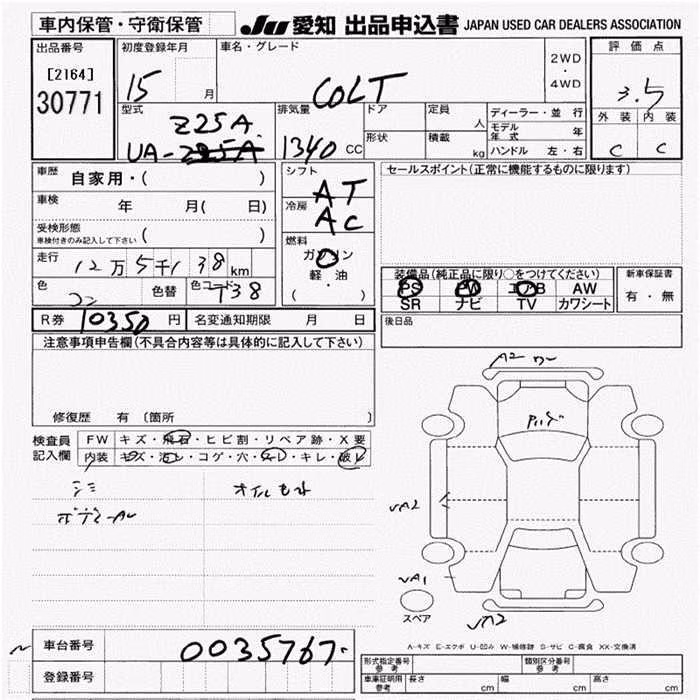 車内保管・守衛保管
JU 愛知 出品申込書 JAPAN USED CAR DEALERS ASSOCIATION
出品番号
[2164]
30771
初度登録年月
15 月
車名・グレード
COLT
2WD
・
4WD
評価点
3.5
外装 内装
C C
型式
Z25A
UA-
排気量
1340 CC
ドア
定員
人
形状
積載
kg
ディーラー・並 行
モデル年式 年
ハンドル 左・右
車歴
自家用・( )
車検
年 月( 日)
受検形態
車検付きのみ記入して下さい ( )
走行
12万5千138km
色
コン
色替
色コード
T38
シフト
AT
冷房
AC
燃料
ガソリン
軽・油
( )
セールスポイント(正常に機能するものに限ります)
装備品(純正品に限り○をつけてください)
PS PW エアB AW
SR ナビ TV カワシート
新車保証書
有・無
R券 10350 円 名変通知期限 月 日
後日品
注意事項申告欄(不具合内容等は具体的に記入して下さい)
修復歴 有 〔箇所 〕
検査員
記入欄
FW キズ・飛石・ヒビ割・リペア跡・X要
内装 キズ・汚レ・コゲ・穴・スレ・キレ・破レ
シミ
オイルモレ
A2 ワー
A2
A1
A2
スペア
A-キズ E-エクボ U-凹み W-補修跡 S-サビ C-腐食 XX-交換済
車台番号
0035767
登録番号
形式指定番号
参考
類別区分番号
参考
車庫証明用
参考
長さ cm 幅 cm 高さ cm